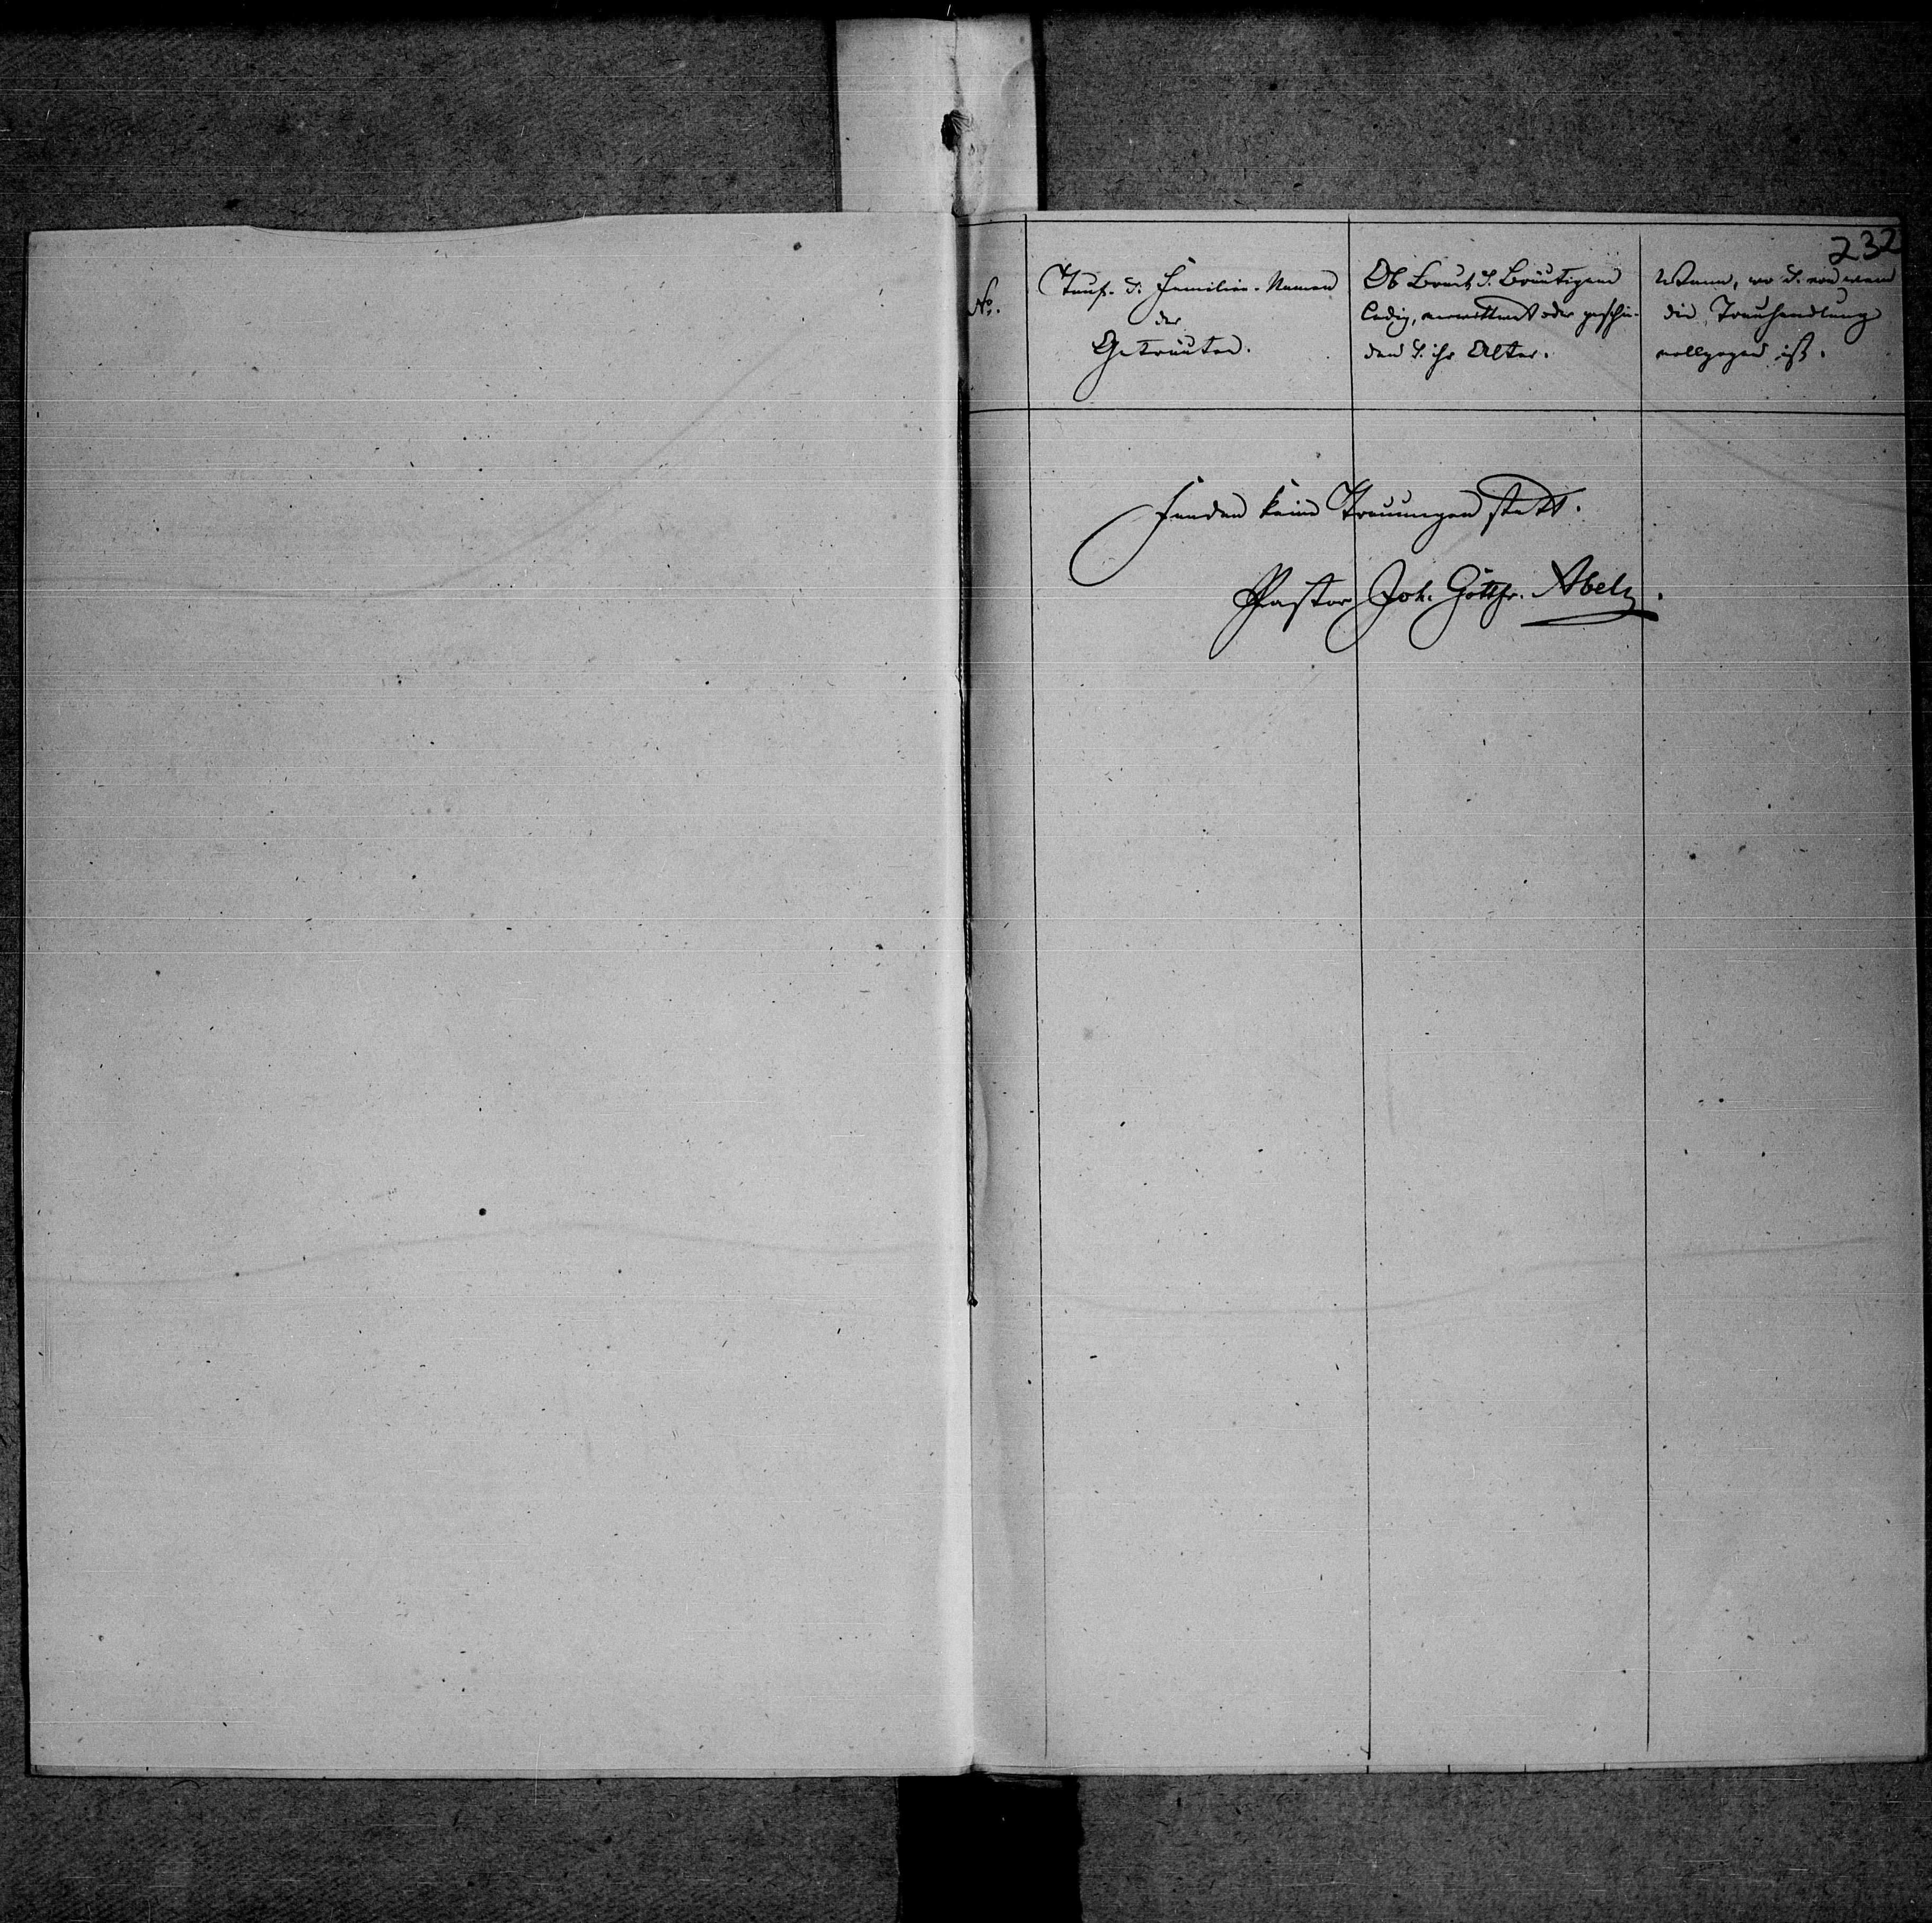 232
No.
Tauf- u. Familien-Namen
der
Getrauten.
Ob Braut u. Bräutigam
ledig, verwittwet oder geschie-
den u. ihr Alter.
Wann, wo u. von wem
die Trauhandlung
vollzogen ist.
Fanden keine Trauungen statt.
Pastor Joh. Gottfr. Abels.